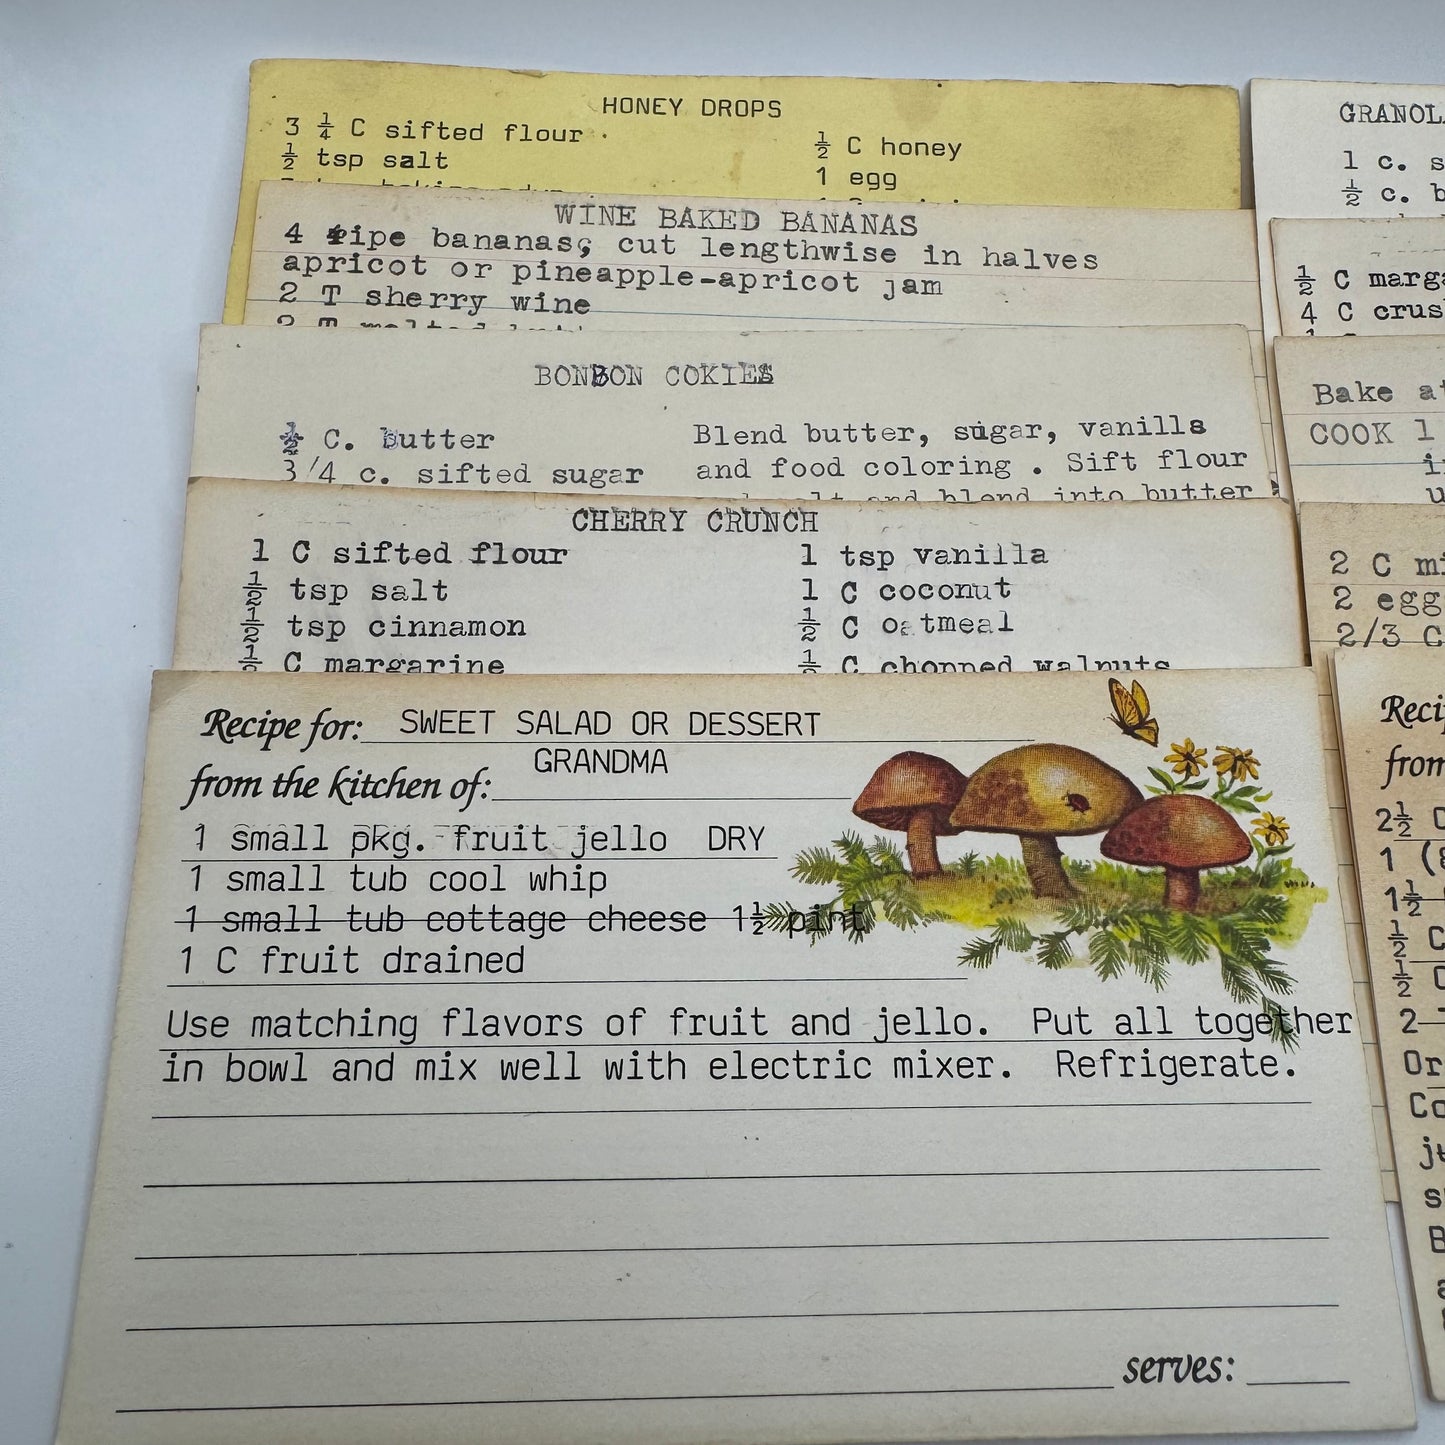 HONEY DROPS
3 1/4 C sifted flour
1/2 tsp salt
1/2 C honey
1 egg
WINE BAKED BANANAS
4 ripe bananas, cut lengthwise in halves
apricot or pineapple-apricot jam
2 T sherry wine
BONBON COKIES
1/2 C. butter
3/4 c. sifted sugar
Blend butter, sugar, vanills
and food coloring . Sift flour
and salt and blend into butter
CHERRY CRUNCH
1 C sifted flour
1/2 tsp salt
1/2 tsp cinnamon
1/2 C margarine
1 tsp vanilla
1 C coconut
1/2 C oatmeal
1/2 C chopped walnuts
Recipe for: SWEET SALAD OR DESSERT
from the kitchen of: GRANDMA
1 small pkg. fruit jello DRY
1 small tub cool whip
1 small tub cottage cheese 1 1/2 pint
1 C fruit drained
Use matching flavors of fruit and jello. Put all together
in bowl and mix well with electric mixer. Refrigerate.
serves:
1 c.
1/2 c.
1/2 C
4 C
Bake
COOK 1
2 C
2
2/3 C
2 1/2
1
1 1/2
1/2
1/2
2